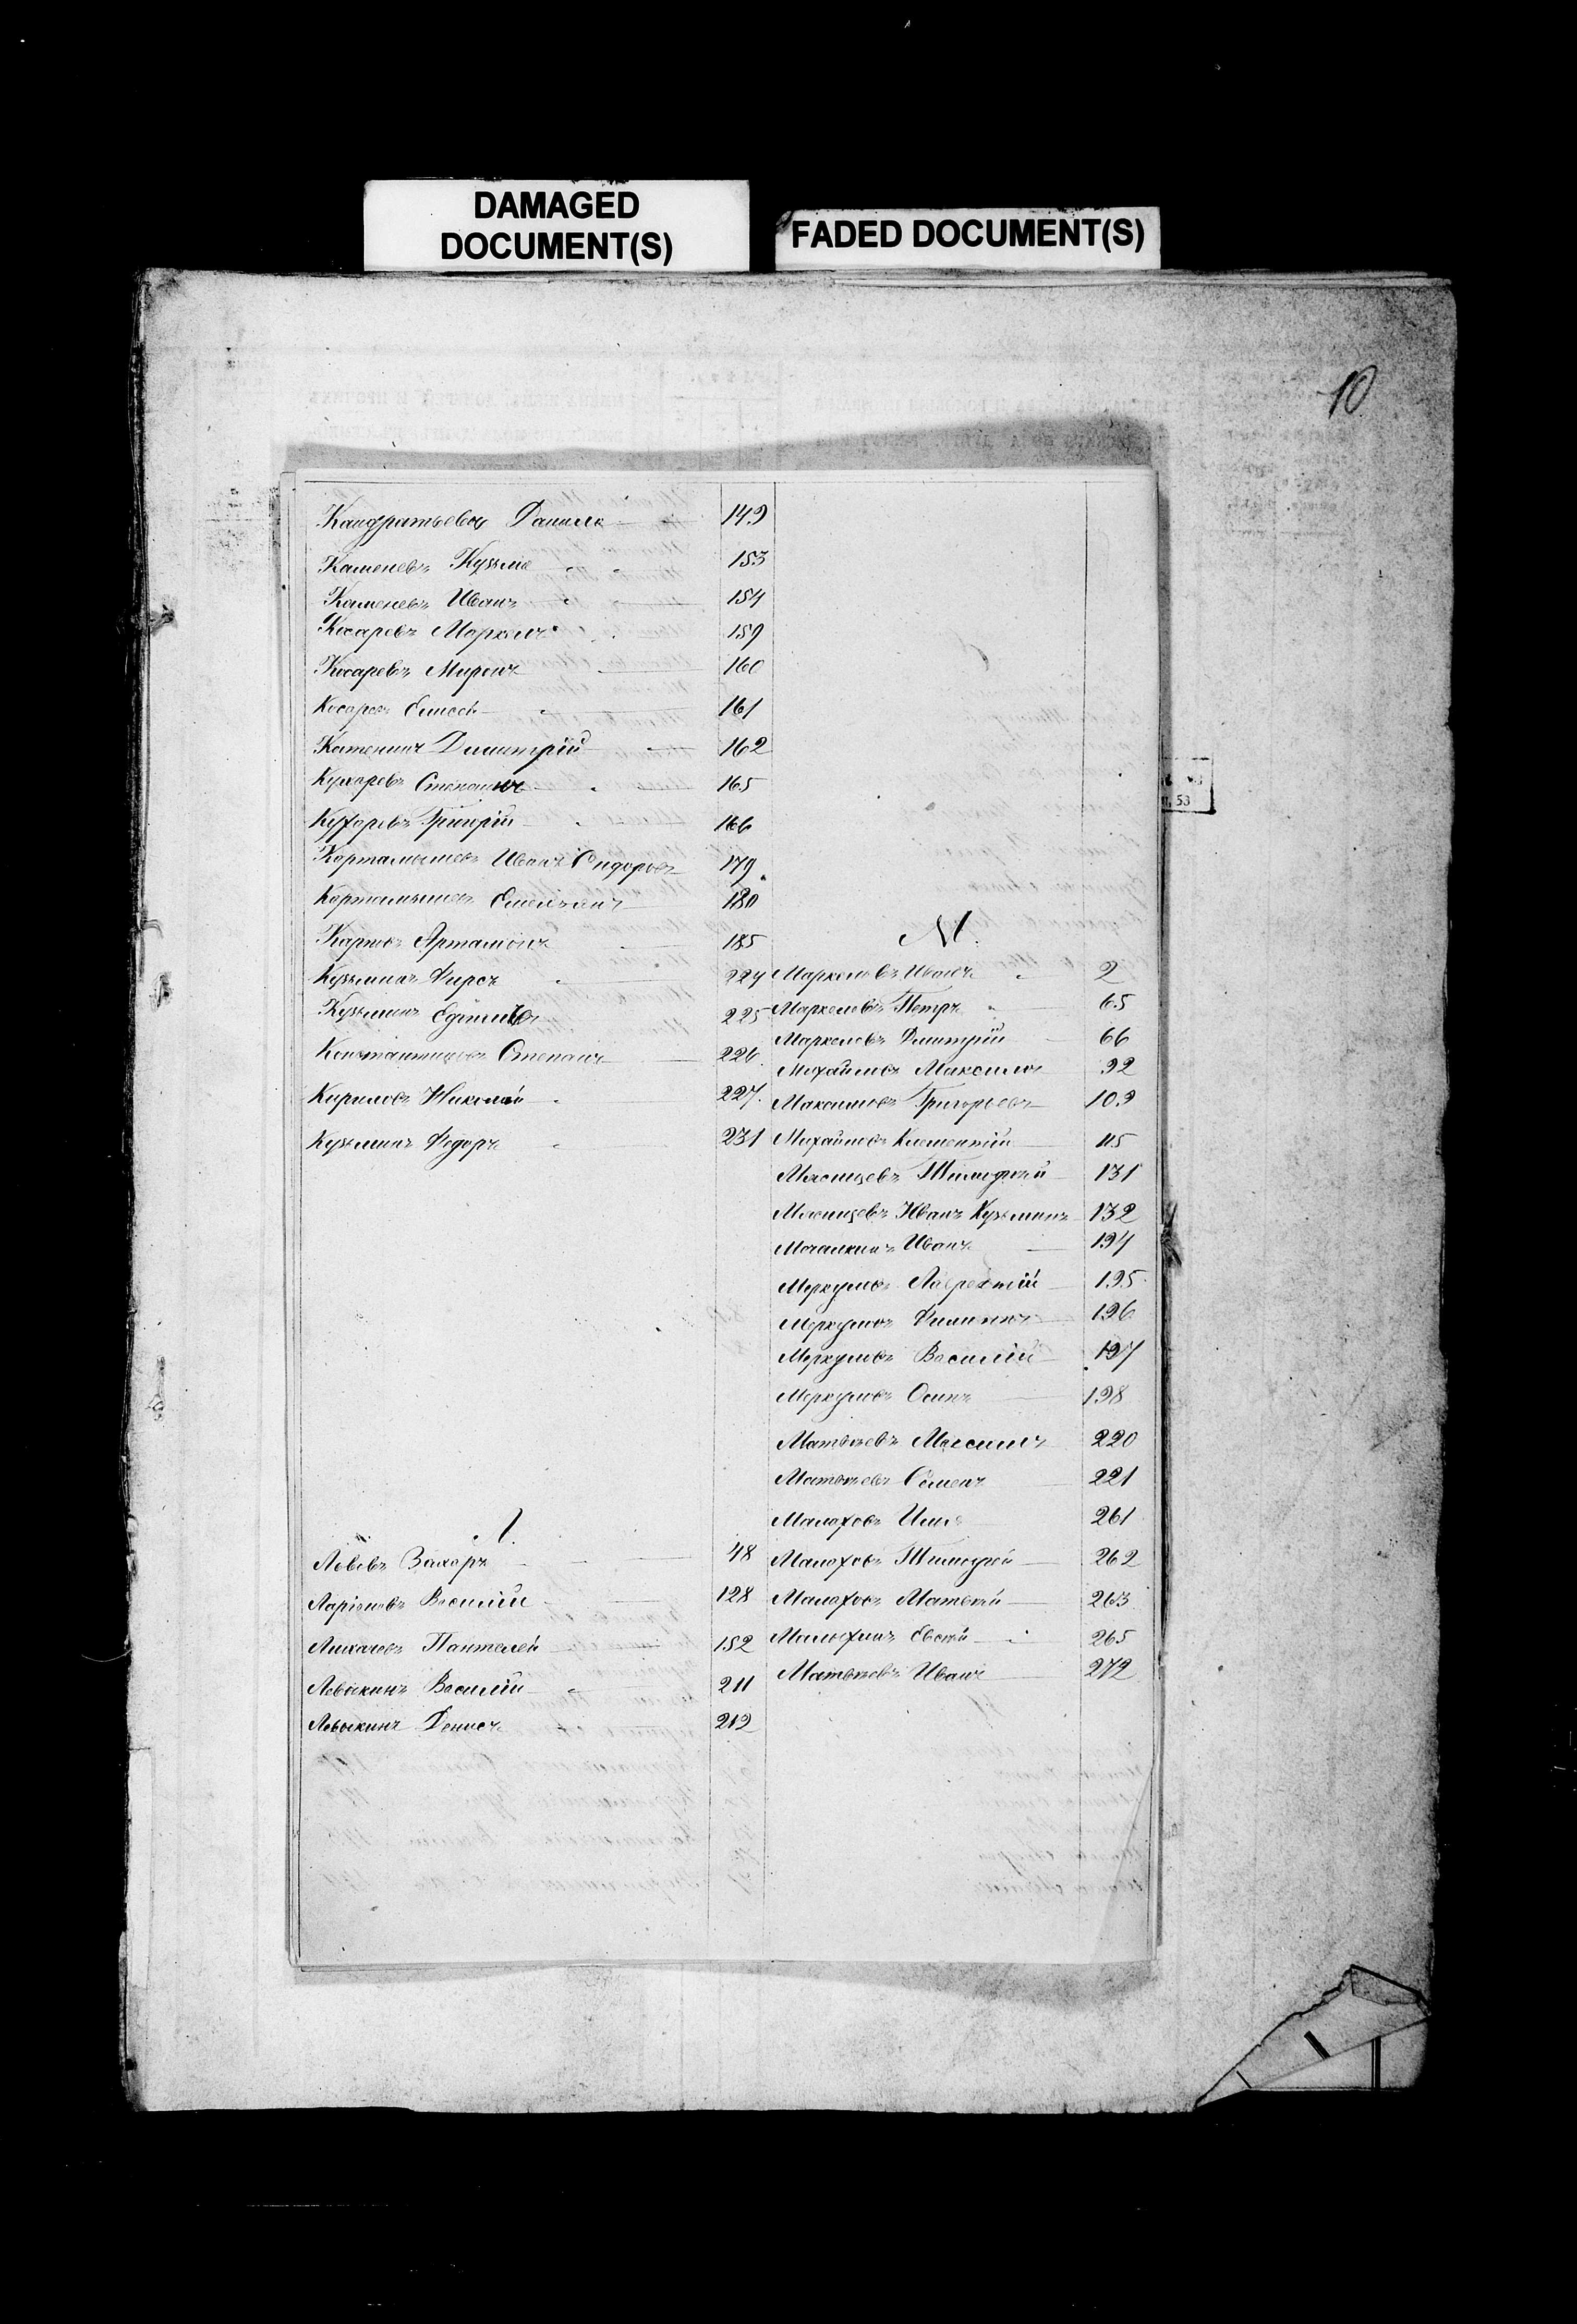 DAMAGED
DOCUMENT(S)
FADED DOCUMENT(S)
10
Кандратьевъ Данила 149
Каменевъ Кузьма 153
Каменевъ Иванъ 154
Косаревъ Маркелъ 159
Косаревъ Миронъ 160
Косаревъ Елисей 161
Катенинъ Дмитрій 162
Кухаревъ Степанъ 165
Кухаревъ Григорій 166
Карталышевъ Иванъ Сидоровъ 179
Карталышевъ Емельянъ 180
Карповъ Артамонъ 185
Кузьминъ Фирсъ 224
Кузьминъ 225
Константиновъ Степанъ 226
Кириловъ Николай 227
Кузьминъ Федоръ 231
Л.
Львовъ Захаръ 48
Ларіоновъ Василій 128
Лихачовъ Пантелей 152
Левыкинъ Василій 211
Левыкинъ Денисъ 212
М.
Маркеловъ Иванъ 2
Маркеловъ Петръ 65
Маркеловъ Дмитрій 66
Михайловъ Максимъ 92
Максимовъ Григорьевъ 109
Михайловъ Климентій 115
Мясищевъ Тимофей 131
Мясищевъ Иванъ Кузьминъ 132
Мочалкинъ Иванъ 194
Меркуловъ Лаврентій 195
Меркуловъ Филипъ 196
Меркуловъ Василій 197
Меркуловъ Осипъ 198
Матвѣевъ Максимъ 220
Матвѣевъ Семенъ 221
Малаховъ Илья 261
Малаховъ Тимофей 262
Малаховъ Матвѣй 263
Малютинъ Евсѣй 265
Матвѣевъ Иванъ 272